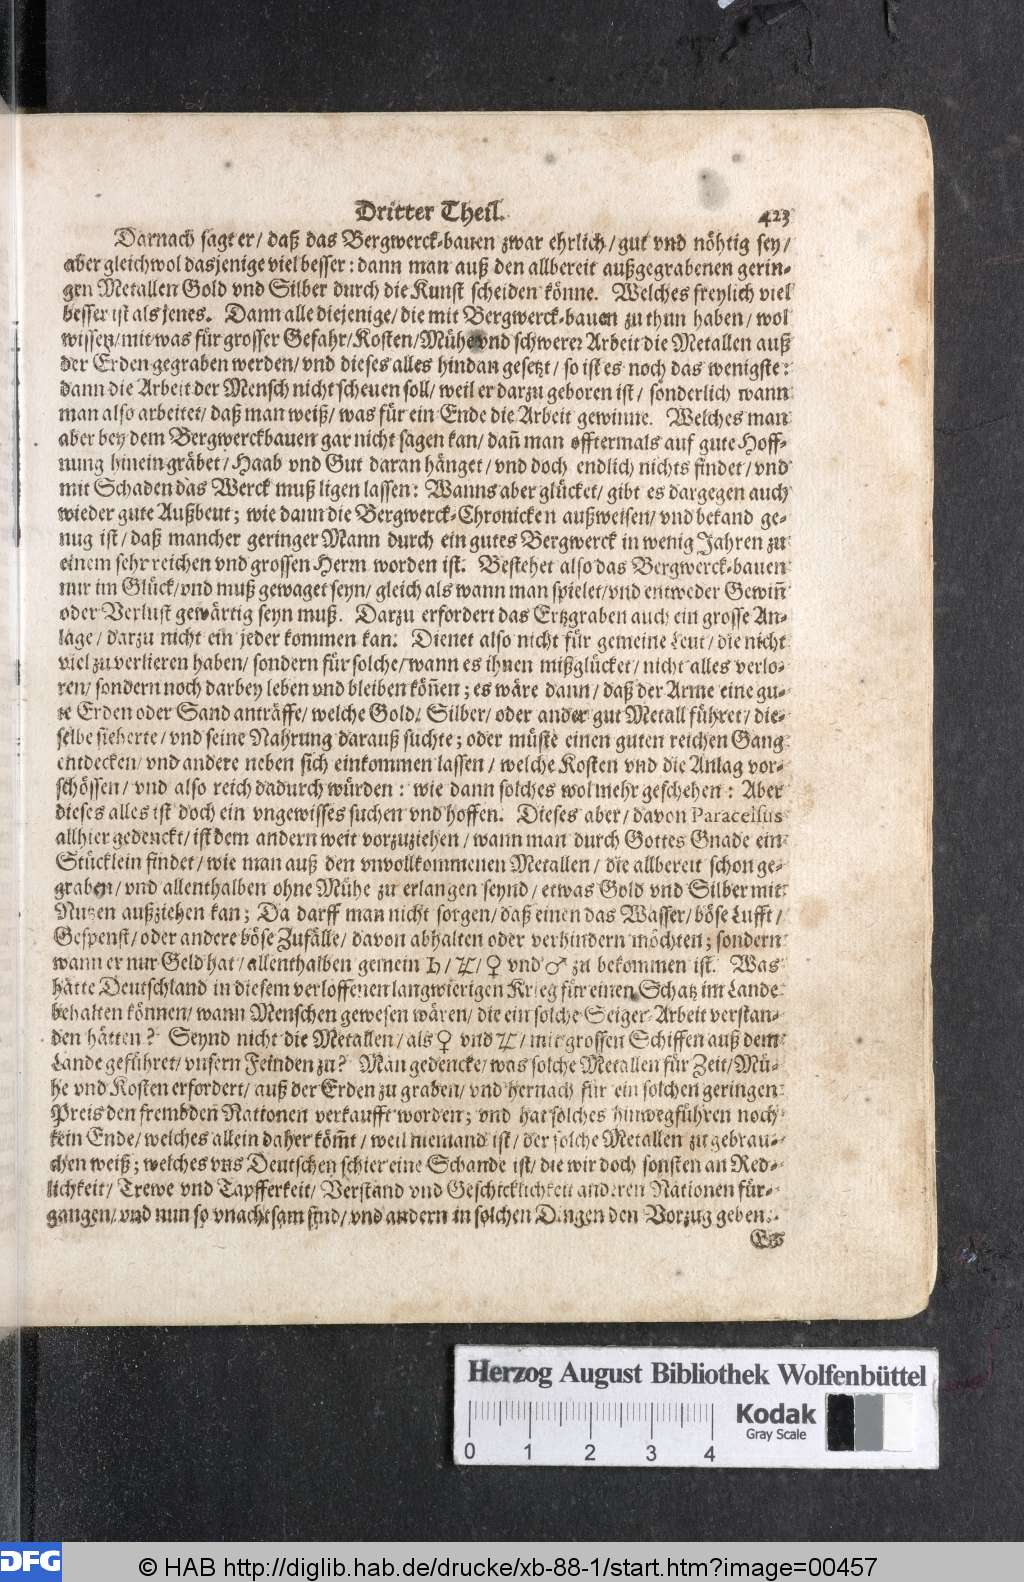 Dritter Theil. 423
Darnach sagt er/ daß das Bergwerck-bauen zwar ehrlich/ gut vnd nöhtig sey/
aber gleichwol dasjenige viel besser: dann man auß den allbereit außgegrabenen gerin-
gen Metallen Gold vnd Silber durch die Kunst scheiden könne. Welches freylich viel
besser ist als jenes. Dann alle diejenige/ die mit Bergwerck-bauen zu thun haben/ wol
wissen/ mit was für grosser Gefahr/ Kosten/ Mühe vnd schwerer Arbeit die Metallen auß
der Erden gegraben werden/ vnd dieses alles hindan gesetzt/ so ist es noch das wenigste:
dann die Arbeit der Mensch nicht scheuen soll/ weil er darzu geboren ist/ sonderlich wann
man also arbeitet/ daß man weiß/ was für ein Ende die Arbeit gewinne. Welches man
aber bey dem Bergwerckbauen gar nicht sagen kan/ dañ man offtermals auf gute Hoff-
nung hinein gräbet/ Haab vnd Gut daran hänget/ vnd doch endlich nichts findet/ vnd
mit Schaden das Werck muß ligen lassen: Wanns aber glücket/ gibt es dargegen auch
wieder gute Außbeut; wie dann die Bergwerck-Chronicken außweisen/ vnd bekand ge-
nug ist/ daß mancher geringer Mann durch ein gutes Bergwerck in wenig Jahren zu
einem sehr reichen vnd grossen Herrn worden ist. Bestehet also das Bergwerck-bauen
nur im Glück/ vnd muß gewaget seyn/ gleich als wann man spielet/ vnd entweder Gewiñ
oder Verlust gewärtig seyn muß. Darzu erfordert das Ertzgraben auch ein grosse An-
lage/ darzu nicht ein jeder kommen kan. Dienet also nicht für gemeine Leut/ die nicht
viel zu verlieren haben/ sondern für solche/ wann es ihnen mißglücket/ nicht alles verlo-
ren/ sondern noch darbey leben vnd bleiben köñen; es wäre dann/ daß der Arme eine gu-
te Erden oder Sand anträffe/ welche Gold/ Silber/ oder ander gut Metall führet/ die-
selbe sieherte/ vnd seine Nahrung darauß suchte; oder müste einen guten reichen Gang
entdecken/ vnd andere neben sich einkommen lassen/ welche Kosten vnd die Anlag vor-
schössen/ vnd also reich dadurch würden: wie dann solches wol mehr geschehen: Aber
dieses alles ist doch ein vngewisses suchen vnd hoffen. Dieses aber/ davon Paracelsus
allhier gedenckt/ ist dem andern weit vorzuziehen/ wann man durch Gottes Gnade ein
Stücklein findet/ wie man auß den vnvollkommenen Metallen/ die allbereit schon ge-
graben/ vnd allenthalben ohne Mühe zu erlangen seynd/ etwas Gold vnd Silber mit
Nutzen außziehen kan; Da darff man nicht sorgen/ daß einen das Wasser/ böse Lufft/
Gespenst/ oder andere böse Zufälle/ davon abhalten oder verhindern möchten; sondern
wann er nur Geld hat/ allenthalben gemein ♄/ ♃/ ♀ vnd ♂ zu bekommen ist. Was
hätte Deutschland in diesem verloffenen langwierigen Krieg für einen Schatz im Lande
behalten können/ wann Menschen gewesen wären/ die ein solche Seiger-Arbeit verstan-
den hätten? Seynd nicht die Metallen/ als ♀ vnd ♃/ mit grossen Schiffen auß dem
Lande geführet/ vnsern Feinden zu? Man gedencke/ was solche Metallen für Zeit/ Mü-
he vnd Kosten erfordert/ auß der Erden zu graben/ vnd hernach für ein solchen geringen
Preis den frembden Nationen verkaufft worden; vnd hat solches hinwegführen noch
kein Ende/ welches allein daher köm̃t/ weil niemand ist/ der solche Metallen zu gebrau-
chen weiß; welches vns Deutschen schier eine Schande ist/ die wir doch sonsten an Red-
lichkeit/ Trewe vnd Tapfferkeit/ Verstand vnd Geschicklichkeit anderen Nationen für-
gangen/ vnd nun so vnachtsam sind/ vnd andern in solchen Dingen den Vorzug geben.
Es
Herzog August Bibliothek Wolfenbüttel
0 1 2 3 4
Kodak
Gray Scale
DFG
© HAB http://diglib.hab.de/drucke/xb-88-1/start.htm?image=00457